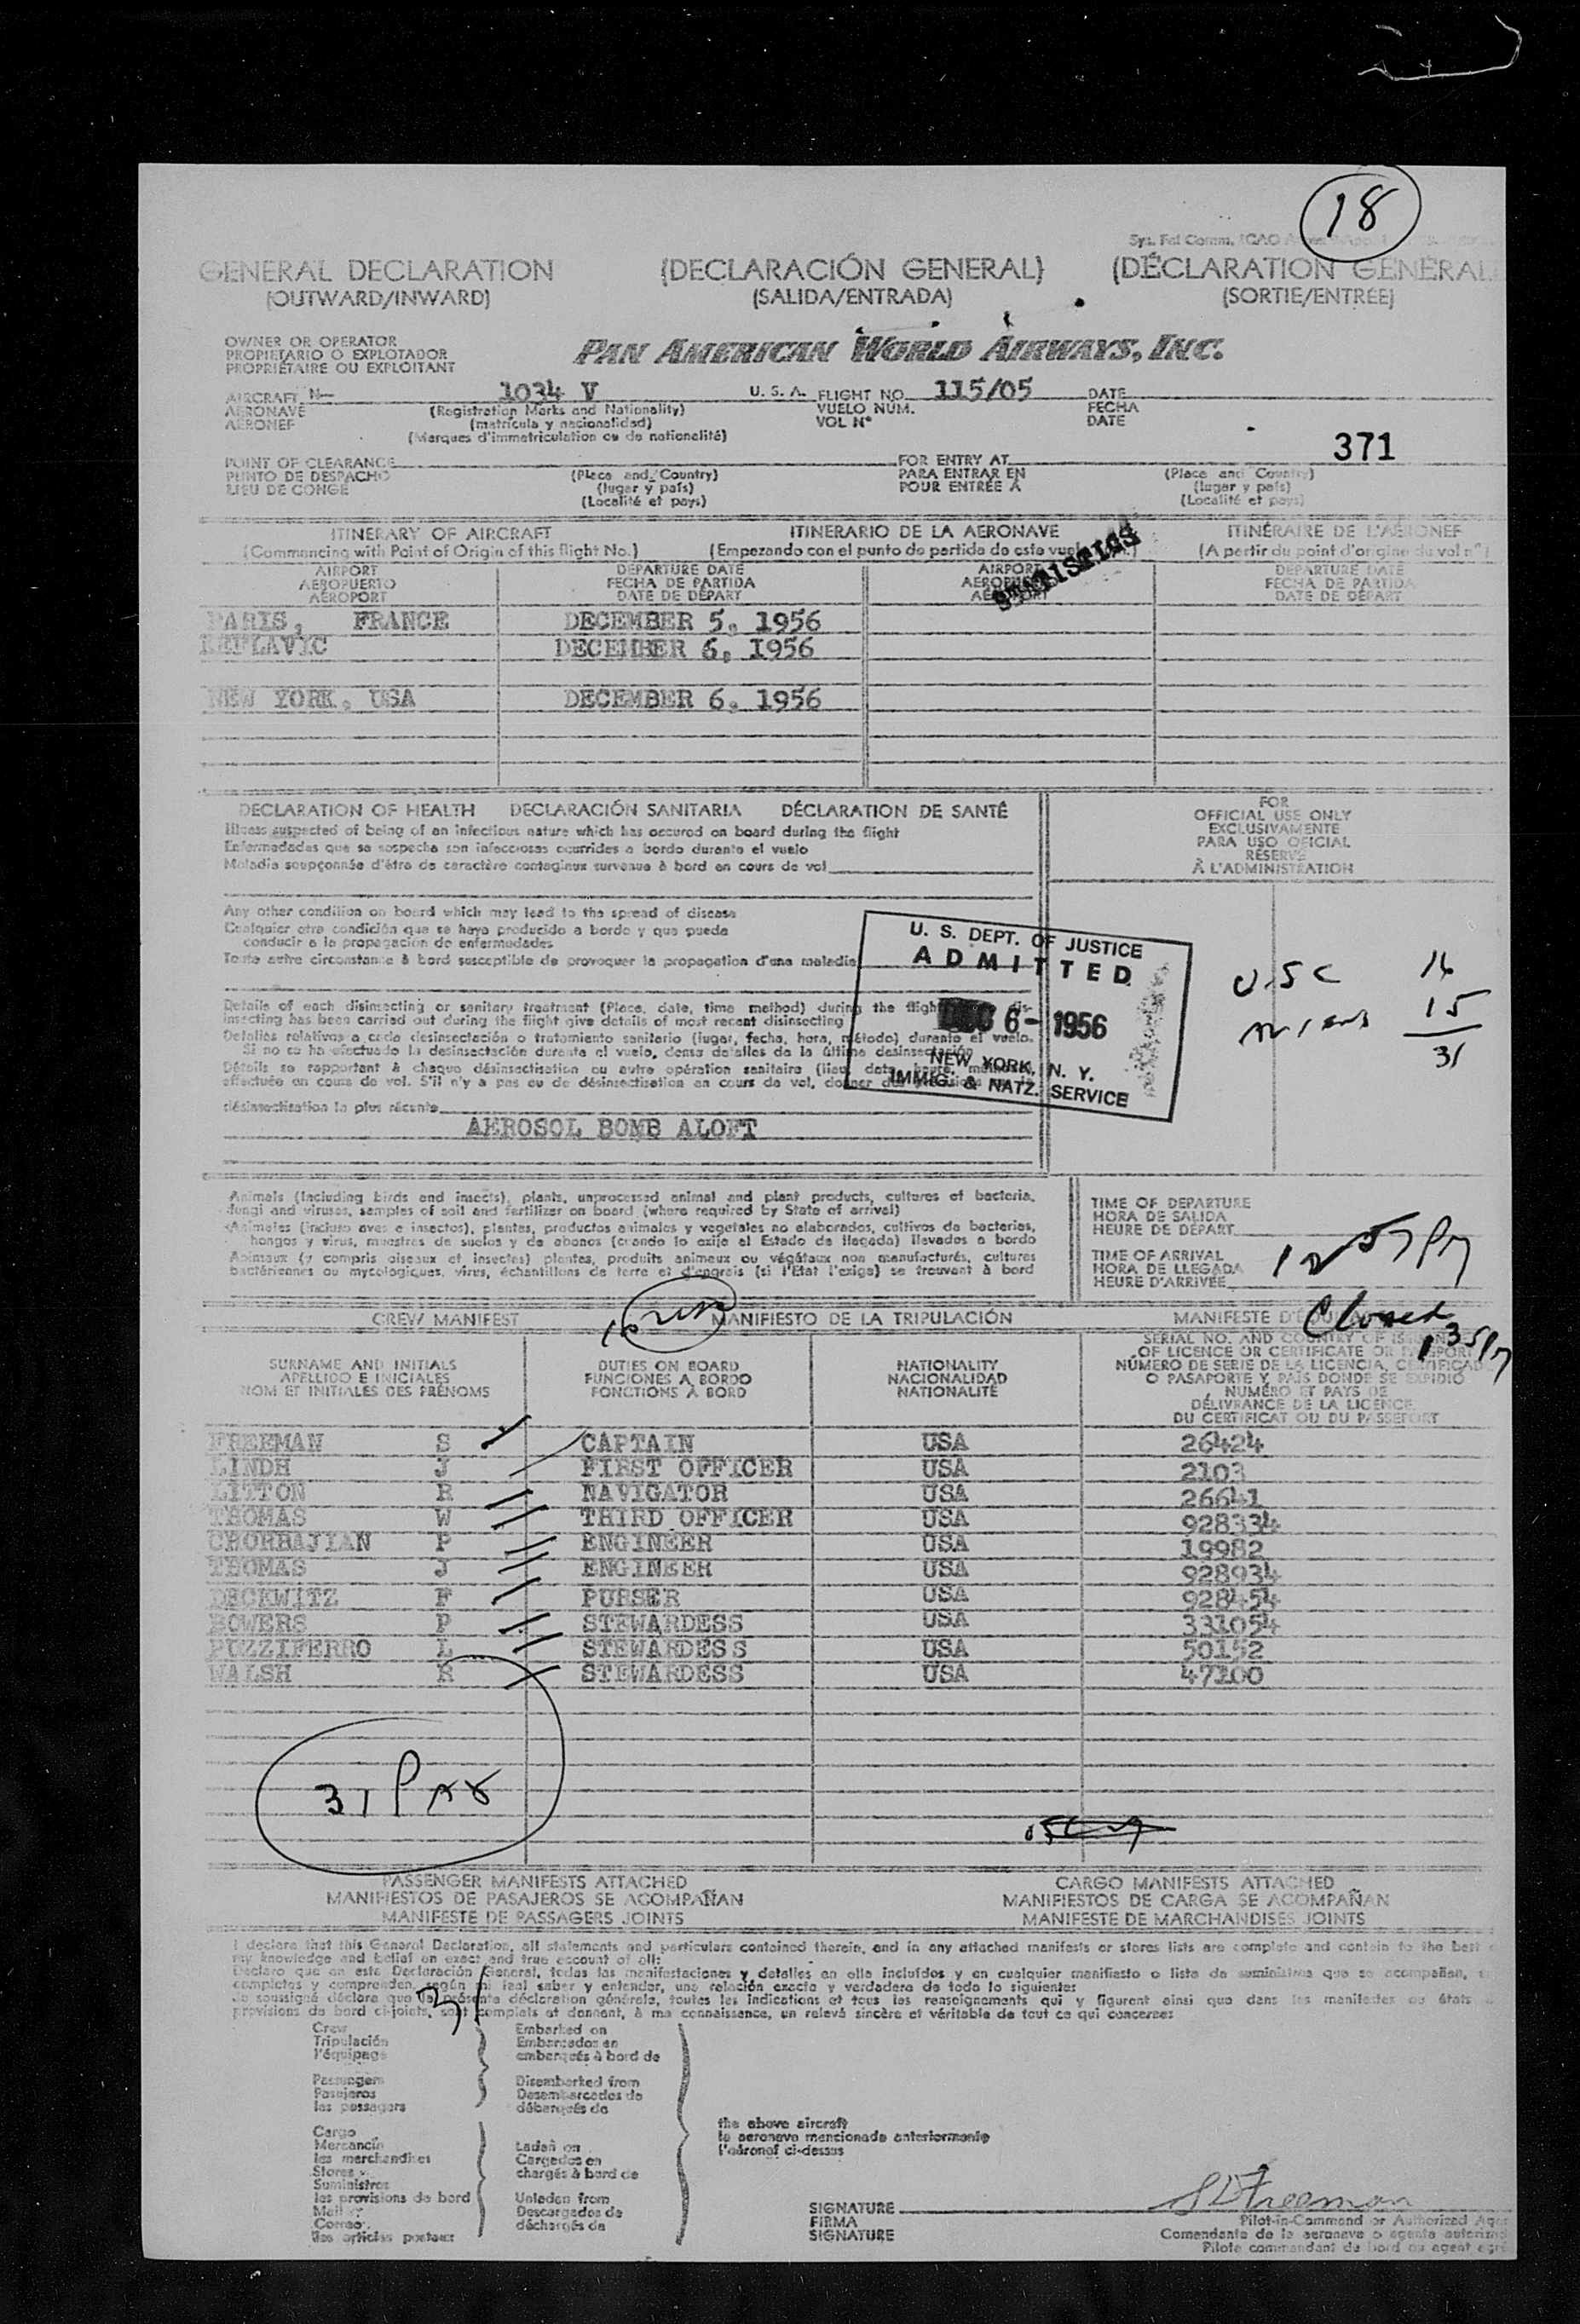 18
GENERAL DECLARATION (DECLARACIÓN GENERAL) (DÉCLARATION GÉNÉRAL
(OUTWARD/INWARD) (SALIDA/ENTRADA) (SORTIE/ENTRÉE)
OWNER OR OPERATOR
PROPIETARIO O EXPLOTADOR
PROPRIÉTAIRE OU EXPLOITANT
PAN AMERICAN WORLD AIRWAYS, INC.
AIRCRAFT N— 1034 V U. S. A. FLIGHT NO. 115/05 DATE
AERONAVE (Registration Marks and Nationality) VUELO NÚM. FECHA
AÉRONEF (matrícula y nacionalidad) VOL Nº DATE
(Marques d'immatriculation ou de nationalité)
371
POINT OF CLEARANCE FOR ENTRY AT
PUNTO DE DESPACHO (Place and Country) PARA ENTRAR EN (Place and Country)
LIEU DE CONGÉ (lugar y país) POUR ENTRÉE À (lugar y país)
(Localité et pays) (Localité et pays)
ITINERARY OF AIRCRAFT ITINERARIO DE LA AERONAVE ITINÉRAIRE DE L'AÉRONEF
(Commencing with Point of Origin of this flight No.) (Empezando con el punto de partida de este (A partir du point d'origine du vol nº)
AIRPORT DEPARTURE DATE AIRPORT DEPARTURE DATE
AEROPUERTO FECHA DE PARTIDA FECHA DE PARTIDA
AÉROPORT DATE DE DÉPART DATE DE DÉPART
PARIS, FRANCE DECEMBER 5, 1956
KEFLAVIC DECEMBER 6, 1956
NEW YORK, USA DECEMBER 6, 1956
DECLARATION OF HEALTH DECLARACIÓN SANITARIA DÉCLARATION DE SANTÉ
Illness suspected of being of an infectious nature which has occured on board during the flight
Enfermedades que se sospecha son infecciosas ocurridas a bordo durante el vuelo
Maladie soupçonnée d'être de caractère contagieux survenue à bord en cours de vol
FOR
OFFICIAL USE ONLY
EXCLUSIVAMENTE
PARA USO OFICIAL
RÉSERVÉ
À L'ADMINISTRATION
Any other condition on board which may lead to the spread of disease
Cualquier otra condición que se haya producido a bordo y que pueda
conducir a la propagación de enfermedades
Toute autre circonstance à bord susceptible de provoquer la propagation d'une maladie
U. S. DEPT. OF JUSTICE
ADMITTED
DEC 6- 1956
NEW YORK, N. Y.
IMMIG. & NATZ. SERVICE
USC 16
Aliens 15
31
Details of each disinsecting or sanitary treatment (Place, date, time method) during the flight dis-
insecting has been carried out during the flight give details of most recent disinsecting
Detalles relativos a cada desinsectación o tratamiento sanitario (lugar, fecha, hora, método) durante el vuelo.
Si no se ha efectuado la desinsectación durante el vuelo, dense detalles de la última desinsectación
Détails se rapportant à chaque désinsectisation ou autre opération sanitaire (lieu, date, heure,
effectuée en cours de vol. S'il n'y a pas eu de désinsectisation en cours de vol, donner
désinsectisation la plus récente
AEROSOL BOMB ALOFT
Animals (including birds and insects), plants, unprocessed animal and plant products, cultures of bacteria,
fungi and viruses, samples of soil and fertilizer on board (where required by State of arrival)
Animales (incluso aves e insectos), plantas, productos animales y vegetales no elaborados, cultivos de bacterias,
hongos y virus, muestras de suelos y de abonos (cuando lo exije el Estado de llegada) llevados a bordo
Animaux (y compris oiseaux et insectes) plantes, produits animaux ou végétaux non manufacturés, cultures
bactériennes ou mycologiques, virus, échantillons de terre et d'engrais (si l'Etat l'exige) se trouvant à bord
TIME OF DEPARTURE
HORA DE SALIDA
HEURE DE DÉPART
TIME OF ARRIVAL
HORA DE LLEGADA
HEURE D'ARRIVÉE
1257 PM
Closed
135 PM
CREW MANIFEST MANIFIESTO DE LA TRIPULACIÓN MANIFESTE
SURNAME AND INITIALS DUTIES ON BOARD NATIONALITY
APELLIDO E INICIALES FUNCIONES A BORDO NACIONALIDAD
NOM ET INITIALES DES PRÉNOMS FONCTIONS À BORD NATIONALITÉ
SERIAL NO. AND COUNTRY OF
OF LICENCE OR CERTIFICATE OR PASSPORT
NÚMERO DE SERIE DE LA LICENCIA, CERTIFICAD
O PASAPORTE Y PAÍS DONDE SE EXPIDIÓ
NUMÉRO ET PAYS DE
DÉLIVRANCE DE LA LICENCE
DU CERTIFICAT OU DU PASSEPORT
FREEMAN S CAPTAIN USA 26424
LINDH J FIRST OFFICER USA 2103
LITTON R NAVIGATOR USA 26641
THOMAS W THIRD OFFICER USA 928334
CHORBAJIAN P ENGINEER USA 19982
THOMAS J ENGINEER USA 928934
DECKWITZ F PURSER USA 928454
BOWERS P STEWARDESS USA 331054
PUZZIFERRO L STEWARDESS USA 50152
WALSH R STEWARDESS USA 47100
31 Pax
PASSENGER MANIFESTS ATTACHED CARGO MANIFESTS ATTACHED
MANIFIESTOS DE PASAJEROS SE ACOMPAÑAN MANIFIESTOS DE CARGA SE ACOMPAÑAN
MANIFESTE DE PASSAGERS JOINTS MANIFESTE DE MARCHANDISES JOINTS
I declare that this General Declaration, all statements and particulars contained therein, and in any attached manifests or stores lists are complete and contain to the best
my knowledge and belief an exact and true account of all:
Declaro que en esta Declaración General, todas las manifestaciones y detalles en ella incluídos y en cualquier manifiesto o lista de suministros que se acompañan,
completos y comprenden, según mi leal saber y entender, una relación exacta y verdadera de todo lo siguiente:
Je soussigné déclare que la présente déclaration générale, toutes les indications et tous les renseignements qui y figurent ainsi que dans les manifestes ou états
provisions de bord ci-joints, sont complets et donnent, à ma connaissance, un relevé sincère et véritable de tout ce qui concerne:
31
Crew Embarked on
Tripulación Embarcados en
l'équipage embarqués à bord de
Passengers Disembarked from
Pasajeros Desembarcados de
les passagers débarqués de
the above aircraft
la aeronave mencionada anteriormente
l'aéronef ci-dessus
Cargo
Mercancía Laden on
les marchandises Cargados en
Stores chargés à bord de
Suministros
les provisions de bord Unladen from
Mail Descargados de
Correo déchargés de
les articles postaux
SIGNATURE S D Freeman
FIRMA
SIGNATURE
Pilot-in-Command or Authorized Age
Comandante de la aeronave o agente autorizad
Pilote commandant de bord ou agent agré